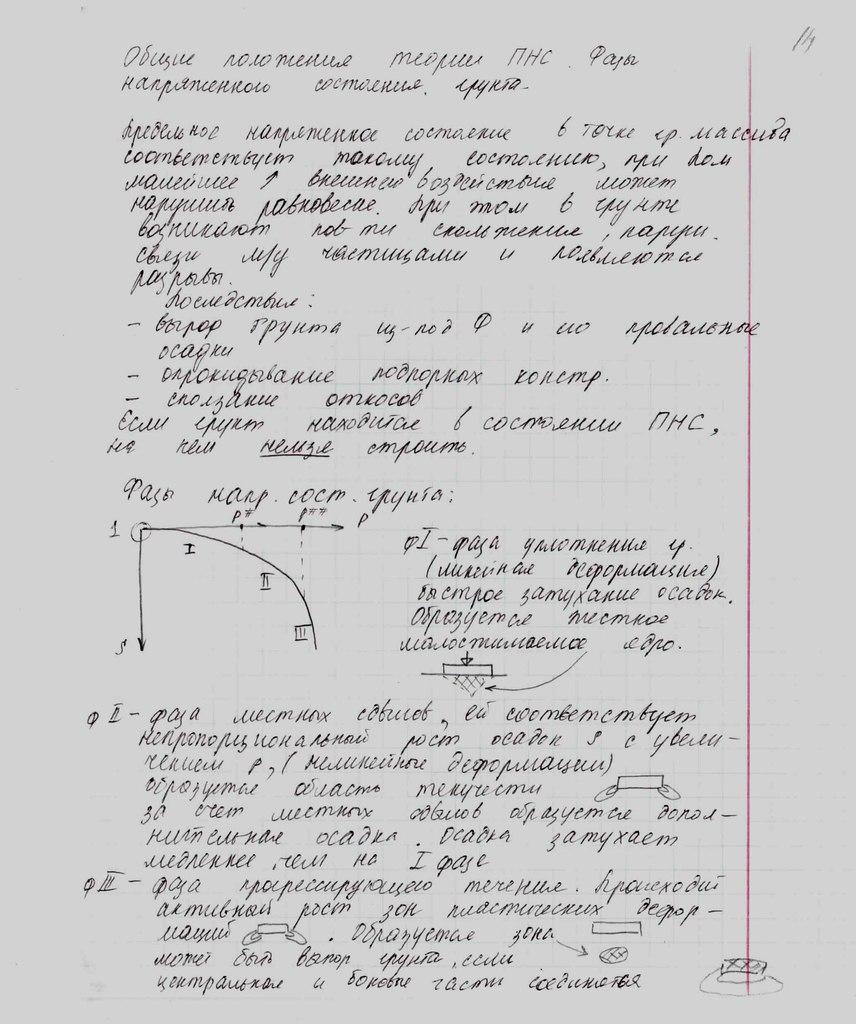 14
Общие положения теории ПНС. Фазы
напряженного состояния грунта.
Предельное напряженное состояние в точке гр. массива
соответствует такому состоянию, при ком
малейшее ↑ внешнего воздействия может
нарушить равновесие. При этом в грунте
возникают пов-ти скольжения, наруш.
связи м/у частицами и появляются
разрывы.
Последствия:
- выпор грунта из-под Ф и его провальные
осадки
- опрокидывание подпорных констр.
- сползание откосов
Если грунт находится в состоянии ПНС,
на нем нельзя строить.
Фазы напр. сост. грунта:
1 P* P** P
I
II
III
S
φ I - фаза уплотнения гр.
(линейная деформация)
быстрое затухание осадок.
Образуется жесткое
малосжимаемое ядро.
φ II - фаза местных сдвигов, ей соответствует
непропорциональный рост осадок S с увели-
чением p, (нелинейные деформации)
образуется область текучести
за счет местных сдвигов образуется допол-
нительная осадка. Осадка затухает
медленнее, чем на I фазе
φ III - фаза прогрессирующего течения. Происходит
активный рост зон пластических дефор-
маций. Образуется зона
может быть выпор грунта, если
центральная и боковые части соединяться